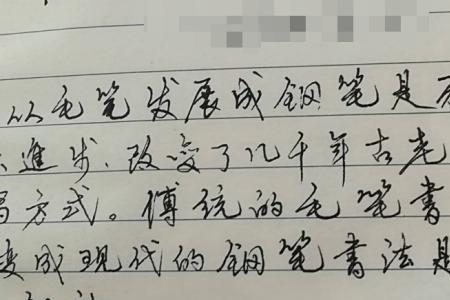 从毛笔发展成钢笔是
進步.改变了几千年古老
方式。傅统的毛笔書
变成现代的钢笔書法是